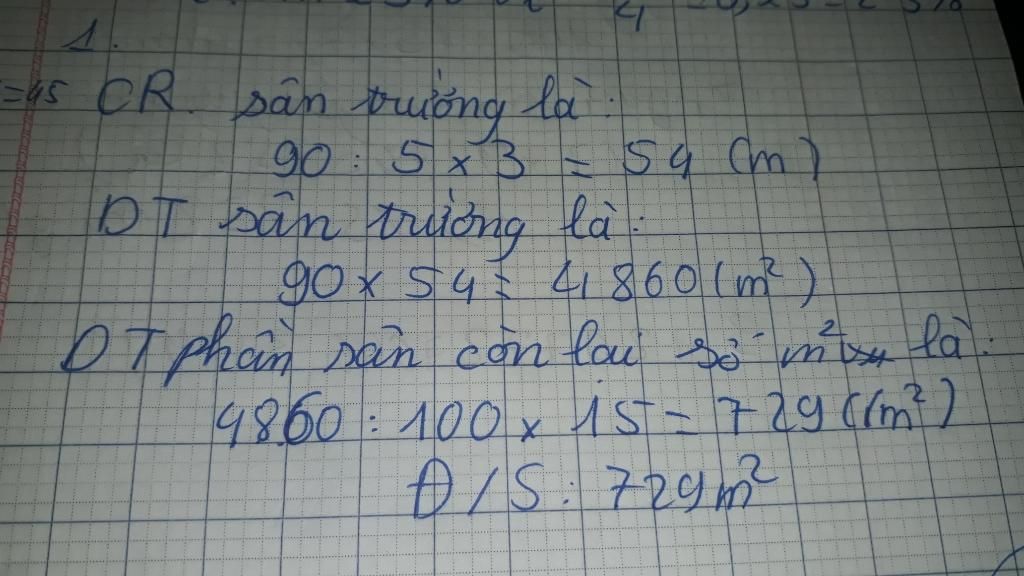 1.
=45 CR sân trường là:
90 : 5 x 3 = 54 (m)
DT sân trường là:
90 x 54 = 4860 (m²)
DT phần sân còn lại số m² là:
4860 : 100 x 15 = 729 (m²)
Đ/S: 729m²